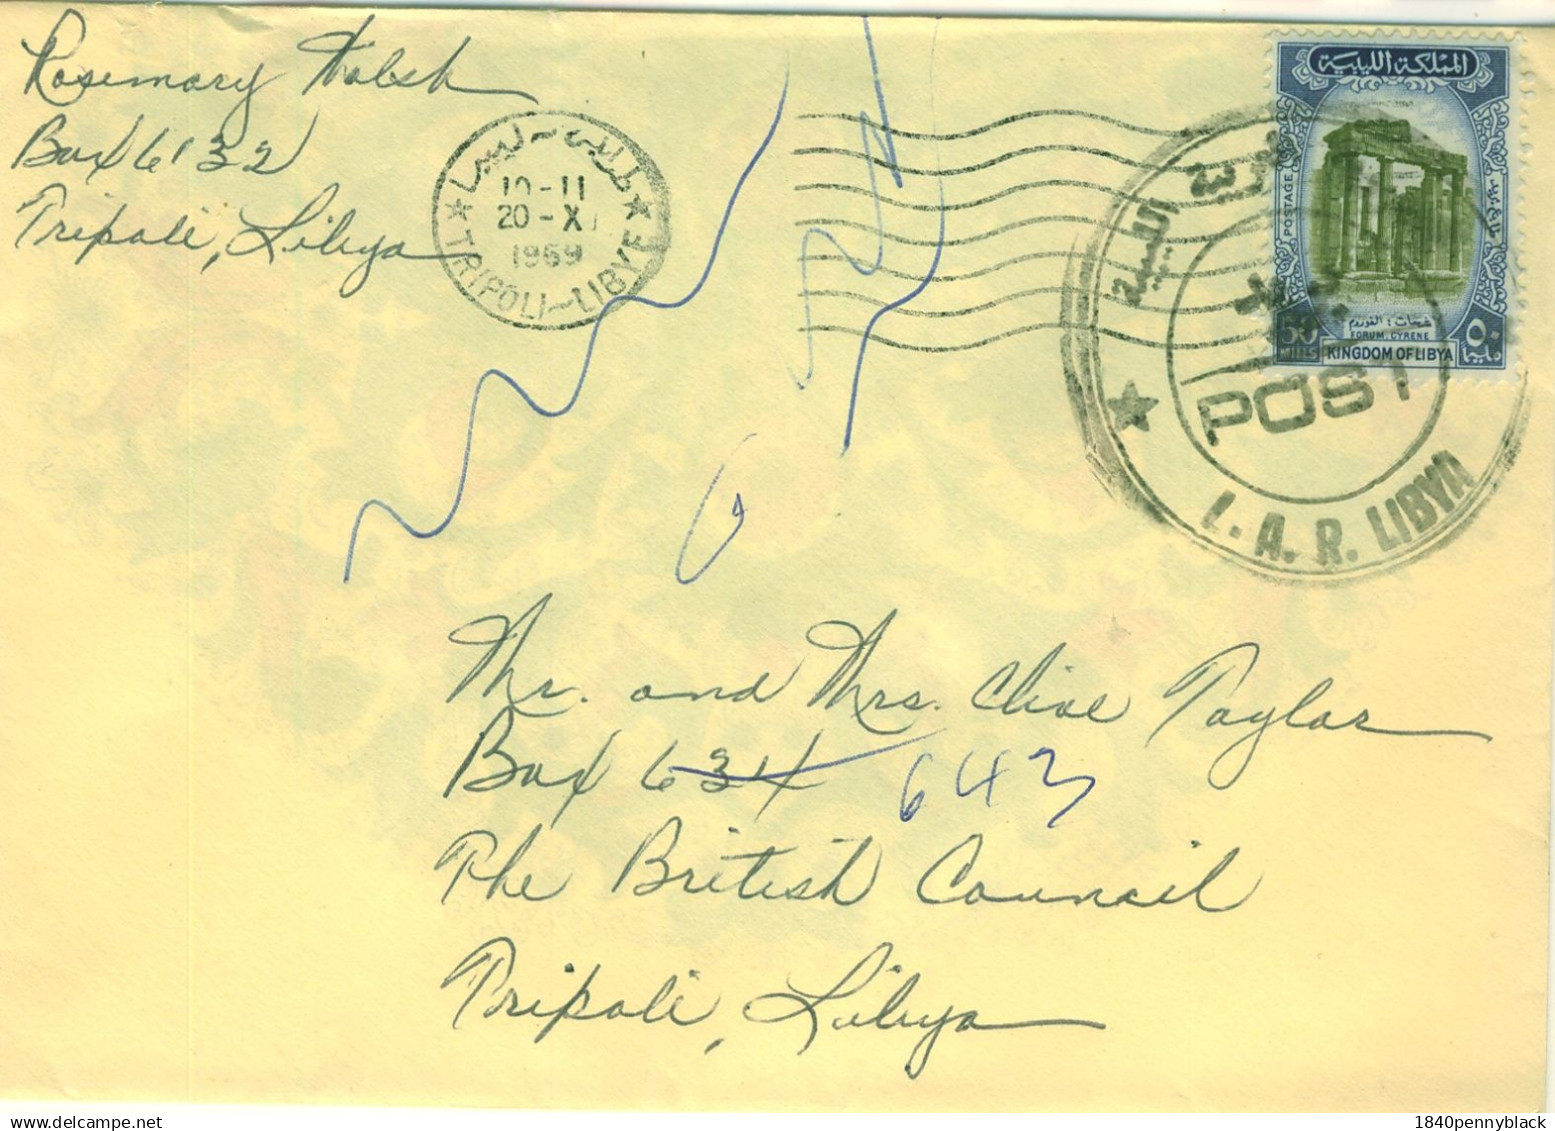 Rosemary Walsh
Box 6132
Tripoli, Libya
طرابلس - ليبيا
10-11
20-X
1969
TRIPOLI - LIBYE
المملكة الليبية
POSTAGE
شحات: الفوروم
FORUM, CYRENE
50
٥٠
KINGDOM OF LIBYA
الليبية
POST
L. A. R. LIBYA
Mr. and Mrs. Clive Taylor
Box 634 643
The British Council
Tripoli, Libya
delcampe.net
1840pennyblack